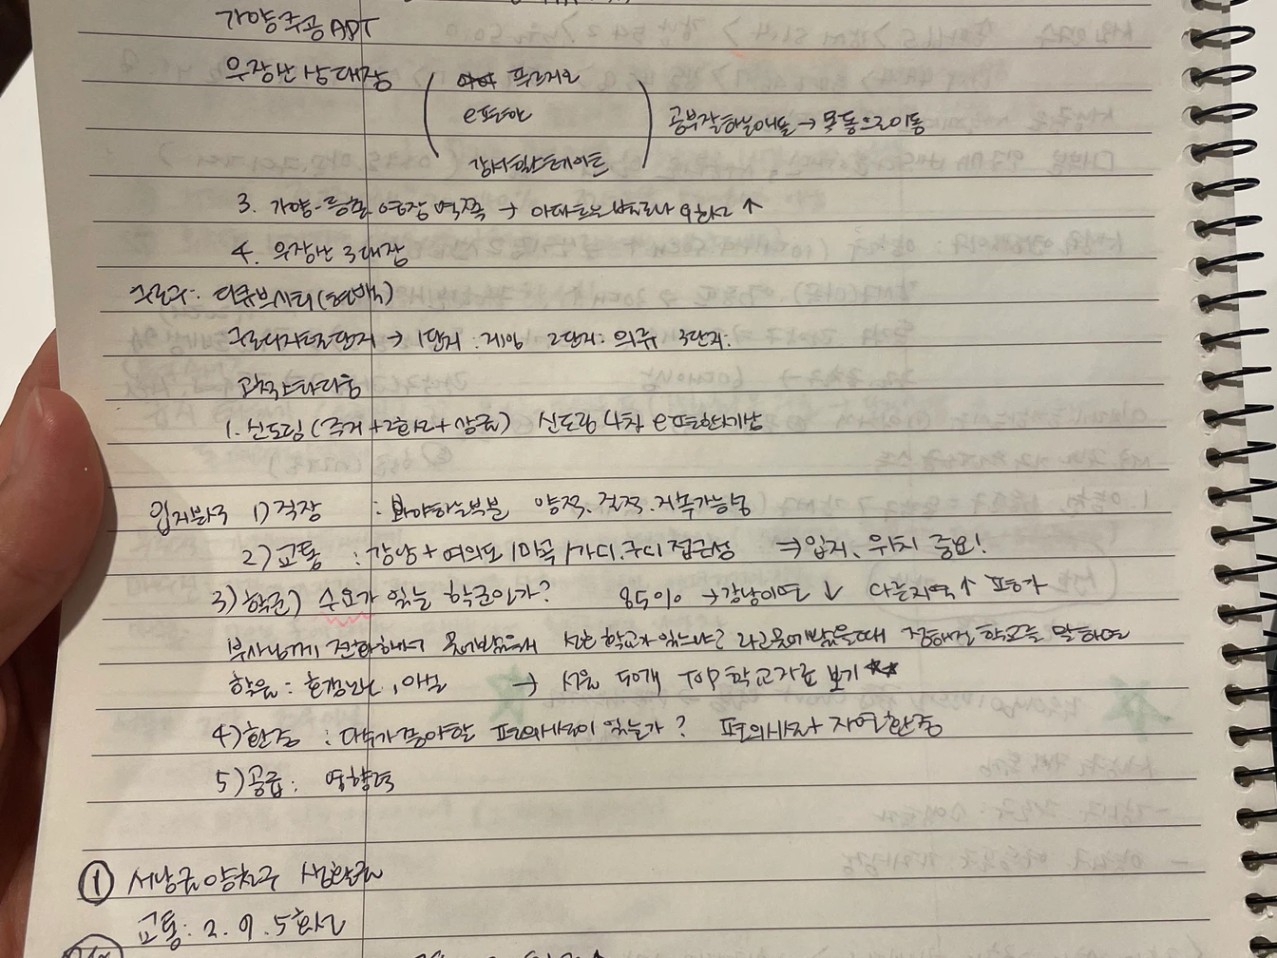 가양주공APT
우장산 삼대장 ( 푸르지오
e편한
강서힐스테이트 ) 공부잘하는애들 → 목동으로이동
3. 가양-등촌 역쪽 → 아파트는 ↑
4. 우장산 3대장
구로구: 디큐브시티(현백)
구로디지털단지 → 1단지: 게임 2단지: 의류 3단지:
1. 신도림(주거+2호선+상권) 신도림 4차 e편한세상
입지분석 1) 직장 : 봐야하는부분 양적. 질적. 지속가능성
2) 교통 : 강남 + 여의도 / 마곡 / 가디. 구디 접근성 ⇒ 입지. 위치 중요!
3) 학군) 수요가 있는 학군인가? 85% → 강남이면 ↓ 다른지역 ↑ 평가
부사님께 전화해서 물어봤을때 선호 학교가 있느냐? 라고 물어봤을때 정해진 학교를 말하면
학원 : → 서울 50개 TOP 학교자료 보기 ☆☆
4) 환경 : 다수가 좋아할 편의시설이 있는가? 편의시설 + 자연환경
5) 공급 : 영향력
① 서남권 양천구 생활권
교통: 2. 9. 5호선